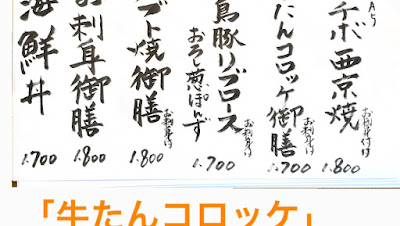 A5
チボ西京焼
お刺身付
1.800
たんコロッケ御膳
お刺身付
1.700
鳥豚リブロース
おろし葱ぽんず
お刺身付
1.700
ト焼御膳
お刺身付
1.800
お刺身御膳
1.800
海鮮丼
1.700
「牛たんコロッケ」